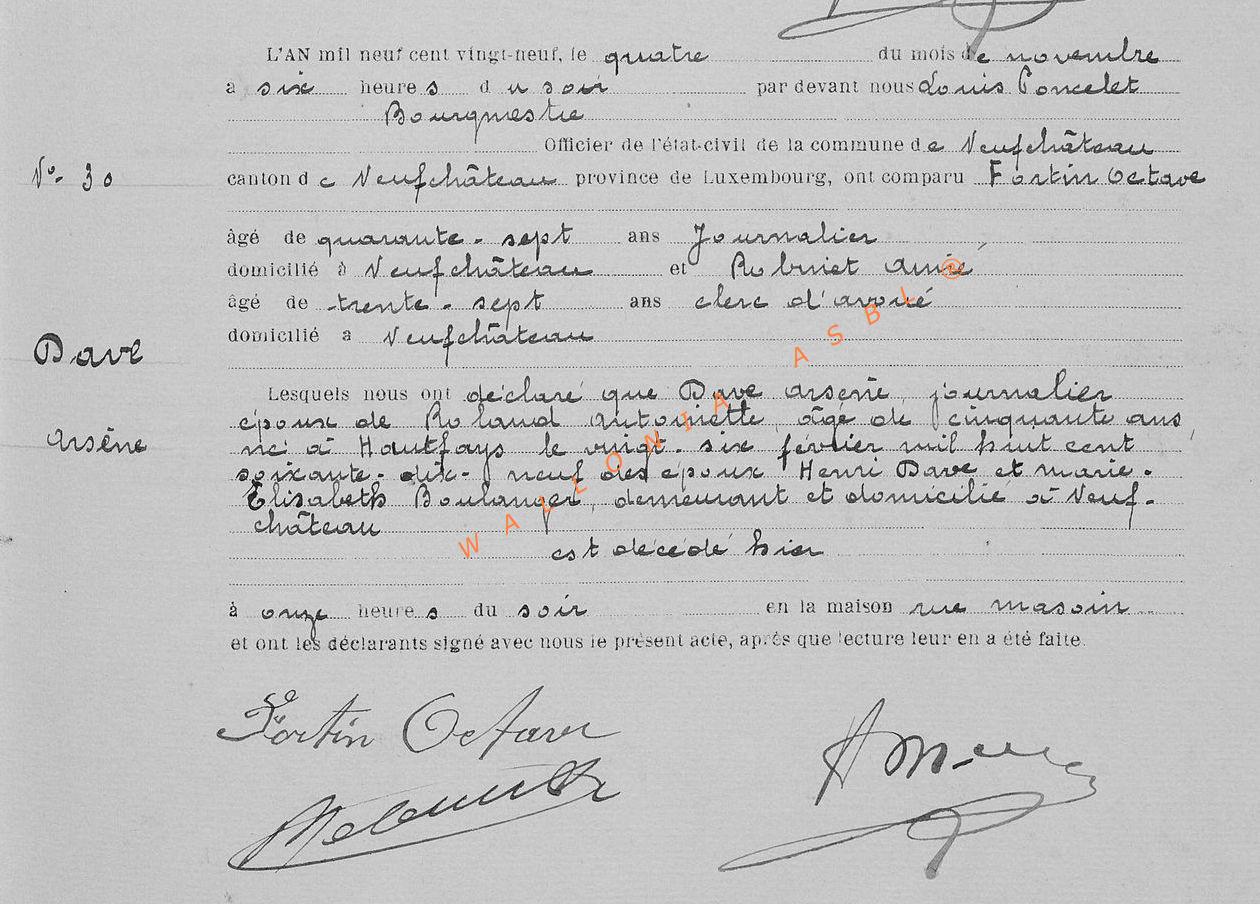 L'AN mil neuf cent vingt-neuf, le quatre du mois de novembre
à six heures du soir par devant nous Louis Poncelet
Bourgmestre
Officier de l'état-civil de la commune de Neufchâteau
N°. 30 canton de Neufchâteau province de Luxembourg, ont comparu Fortin Octave
âgé de quarante-sept ans Journalier
domicilié à Neufchâteau et
âgé de trente-sept ans clerc d'avoué
domicilié à Neufchâteau
Dave
Lesquels nous ont déclaré que Dave Arsène, journalier
époux de Roland Antoinette, âgé de cinquante ans,
Arsène né à Hautfays le vingt-six février mil huit cent
soixante-dix-neuf des époux Henri Dave et Marie-
Elisabeth Boulanger, demeurant et domicilié à Neuf-
château
est décédé hier
à onze heures du soir en la maison rue Masoin
et ont les déclarants signé avec nous le présent acte, après que lecture leur en a été faite.
Fortin Octave
WALLONIA ASBL ®